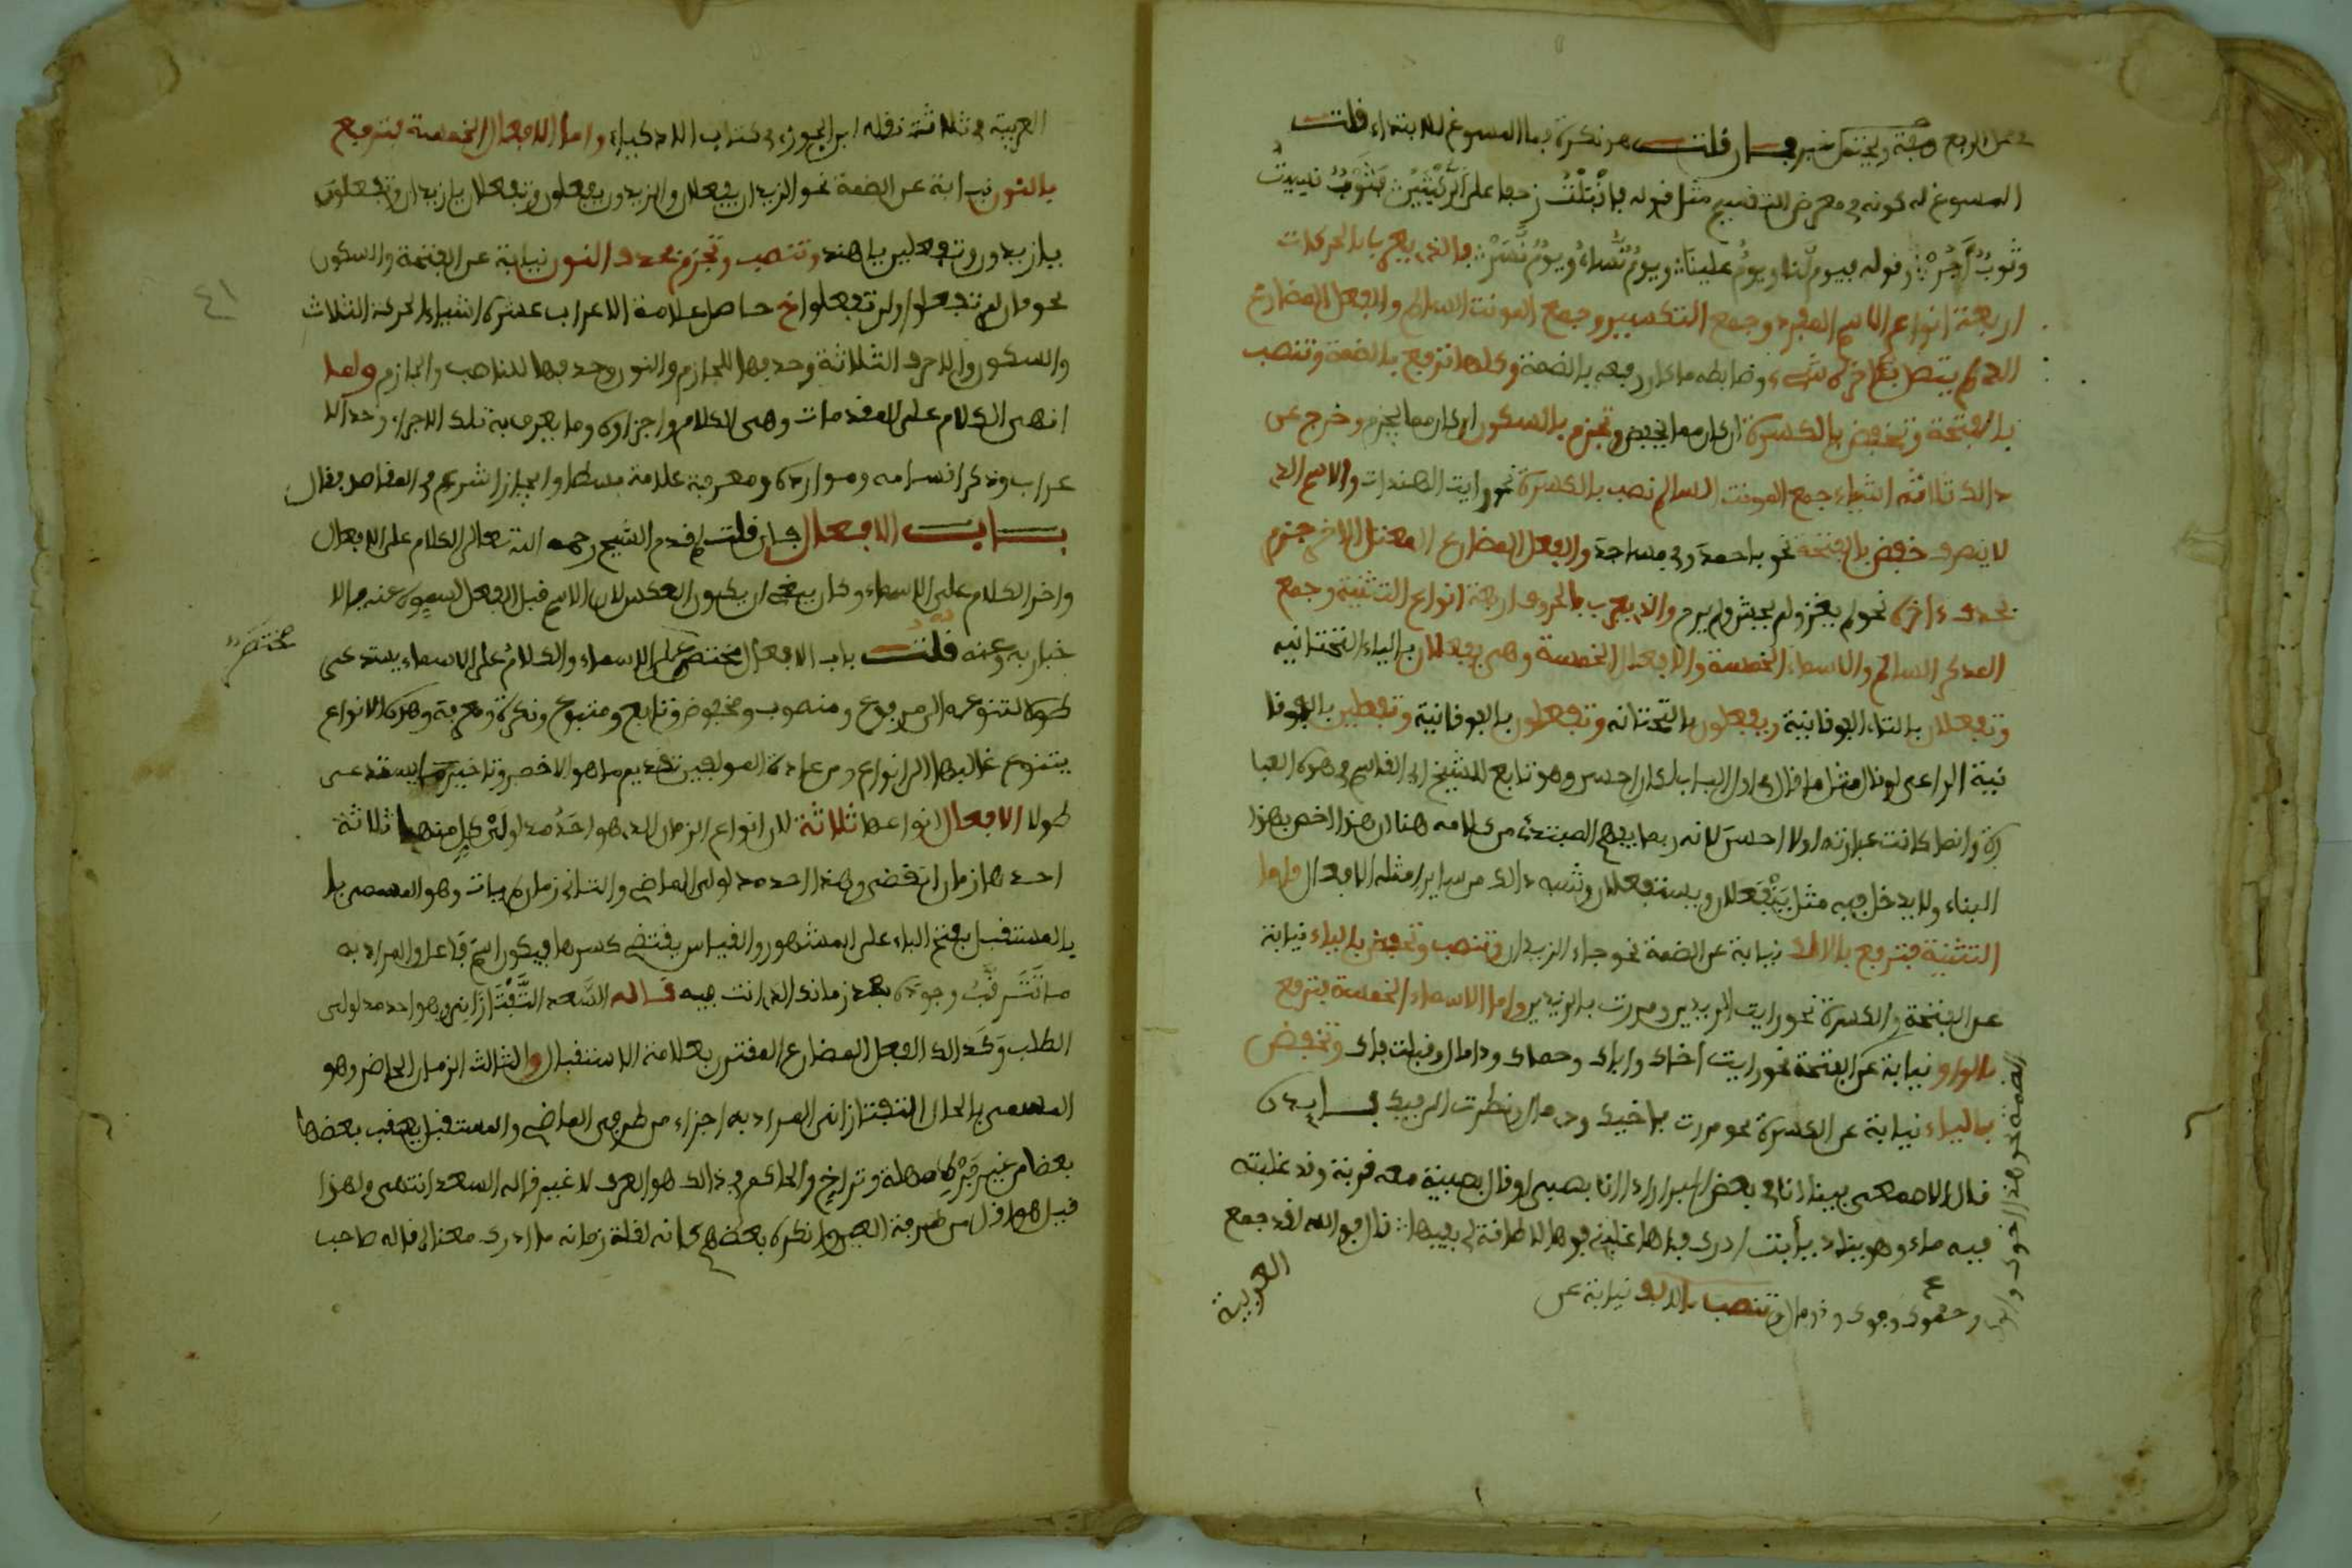 محل الرفع صفة ويحتمل خبر فإن قلت هو نكرة بما المسوغ للابتداء قلت
المسوغ له كونه في معرض التقسيم مثل قوله فأقبلت زحفا على الركبتين فثوب نسيت
وثوب أجر وقوله فيوم لنا ويوم علينا ويوم نساء ويوم نسر فالذي يعرب بالحركات
اربعة انواع الاسم المفرد وجمع التكسير وجمع المونث السالم والفعل المضارع
الذي لم يتصل بـاخره شيء وضابطه ما كان رفعه بالضمة وكلها ترفع بالضمة وتنصب
بالفتحة وتخفض بالكسرة ان كان مما يخفض وتجزم بالسكون ان كان مما يجزم وخرج عن
ذالك ثلاثة اشياء جمع المونث السالم نصب بالكسرة نحو رايت الهندات والاسم الذي
لا ينصرف خفض بالفتحة نحو باحمد وفي مساجد والفعل المضارع المعتل الاخر جزم
بحذف ءاخره نحو لم يغز ولم يخش ولم يرم والذي يعرب بالحروف اربعة انواع التثنية وجمع
المذكر السالم والاسماء الخمسة والافعال الخمسة وهي يفعلان بالياء التحتانيه
وتفعلان بالتاء الفوقانية ويفعلون بالتحتانه وتفعلون بالفوقانية وتفعلين بالفوقا
نية الراعي لو قال مثل ما قال في اول الباب لكان احسن وهو تابع للشيخ ابي القاسم في هذه العبا
رة وانما كانت عبارته اولا احسن لانه ربما يفهم المبتدئ من كلامه هنا ان هذا اخص بهذا
البناء ولا يدخل فيه مثل ينفعلان ويستفعلان وشبه ذالك من ساير امثلة الافعال فاما
التثنية فترفع بالالف نيابة عن الضمة نحو جاء الزيدان وتنصب وتخفض بالياء نيابة
عن الفتحة والكسرة نحو رايت الزيدين ومررت بالزيدين واما الاسماء الخمسة فترفع
بالواو نيابة عن الفتحة نحو رايت اخاك واباك وحماك وذا مال وقبلت فاك وتخفض
بالياء نيابة عن الكسرة نحو مررت باخيك وذي مال ونظرت الى فيك فايدة
قال الاصمعي بينا انا في بعض اذا انا بصبي او قال بصبية معه قربة وقد غلبته
فيه ماء وهو ينادي يا ابت ادرك فاها غلبني فوها لا طاقة لي بفيها قال فوالله لقد جمع
وحموك وفوك وذو مال وتنصب بالالف نيابة عن
العربية
العربية في ثلاثة نقله ابن الجوزي في كتاب الاذكياء واما الافعال الخمسة فترفع
بالنون نيابة عن الضمة نحو الزيدان يفعلان والزيدون يفعلون وتفعلان يا زيدان وتفعلون
يا زيدون وتفعلين يا هند وتنصب وتجزم بحذف النون نيابة عن الفتحة والسكون
نحو فان لم تفعلوا ولن تفعلوا خ حاصل علامة الاعراب عشرة اشياء الحركة الثلاث
والسكون والاحرف الثلاثة وحذفها للجازم والنون وحذفها للناصب والجازم ولما
انهى الكلام على المقدمات وهي الكلام واجزاوه وما يعرف به تلك الاجزاء وحد الا
عراب وذكر اقسامه وموارده ومعرفة علامة بسطا وايجازا شرع في المقاصد فقال
بــاب الافعال فان قلت لم قدم الشيخ رحمه الله تعالى الكلام على الافعال
واخر الكلام على الاسماء وكان ينبغي ان يكون العكس لان الاسم قبل الفعل لسموه عنه بالا
خبار به وعنه قلت باب الافعال مختصر على الاسماء والكلام على الاسماء يستدعي
مختصر
طوله لتنوعه الى مرفوع ومنصوب ومخفوض وتابع ومتبوع ونكرة ومعرفة وهذه الانواع
يتنوع غالبها الى انواع ومن عادة المولفين تقديم ما هو الاخصر وتاخير ما يستدعي
طولا الافعال انواعها ثلاثة لان انواع الزمان الذي هو احد مدلولي كل منها ثلاثة
احدها زمان انقضى وهذا احد مدلولي الماضي والثاني زمان لم يات وهو المسمى با
بالمستقبل بفتح الباء على المشهور والقياس يقتضي كسرها فيكون اسم فاعل والمراد به
ما تترقب وجوده بعد زمانك الذي انت فيه قاله السعد التفتازاني وهو احد مدلولي
الطلب وكذالك الفعل المضارع المقترن بعلامة الاستقبال والثالث الزمان الحاضر وهو
المسمى بالحال التفتازاني المراد به اجزاء من طرفي الماضي والمستقبل يعقب بعضها
بعضا من غير فرط مهلة وتراخ والحاكم في ذالك هو العرف لا غير قاله السعد انتهى ولهذا
قيل هو اقل من طرفة العين وانكره بعضهم كانه لقلة زمانه ما ادرك معنا لى قاله صاحب
٤١